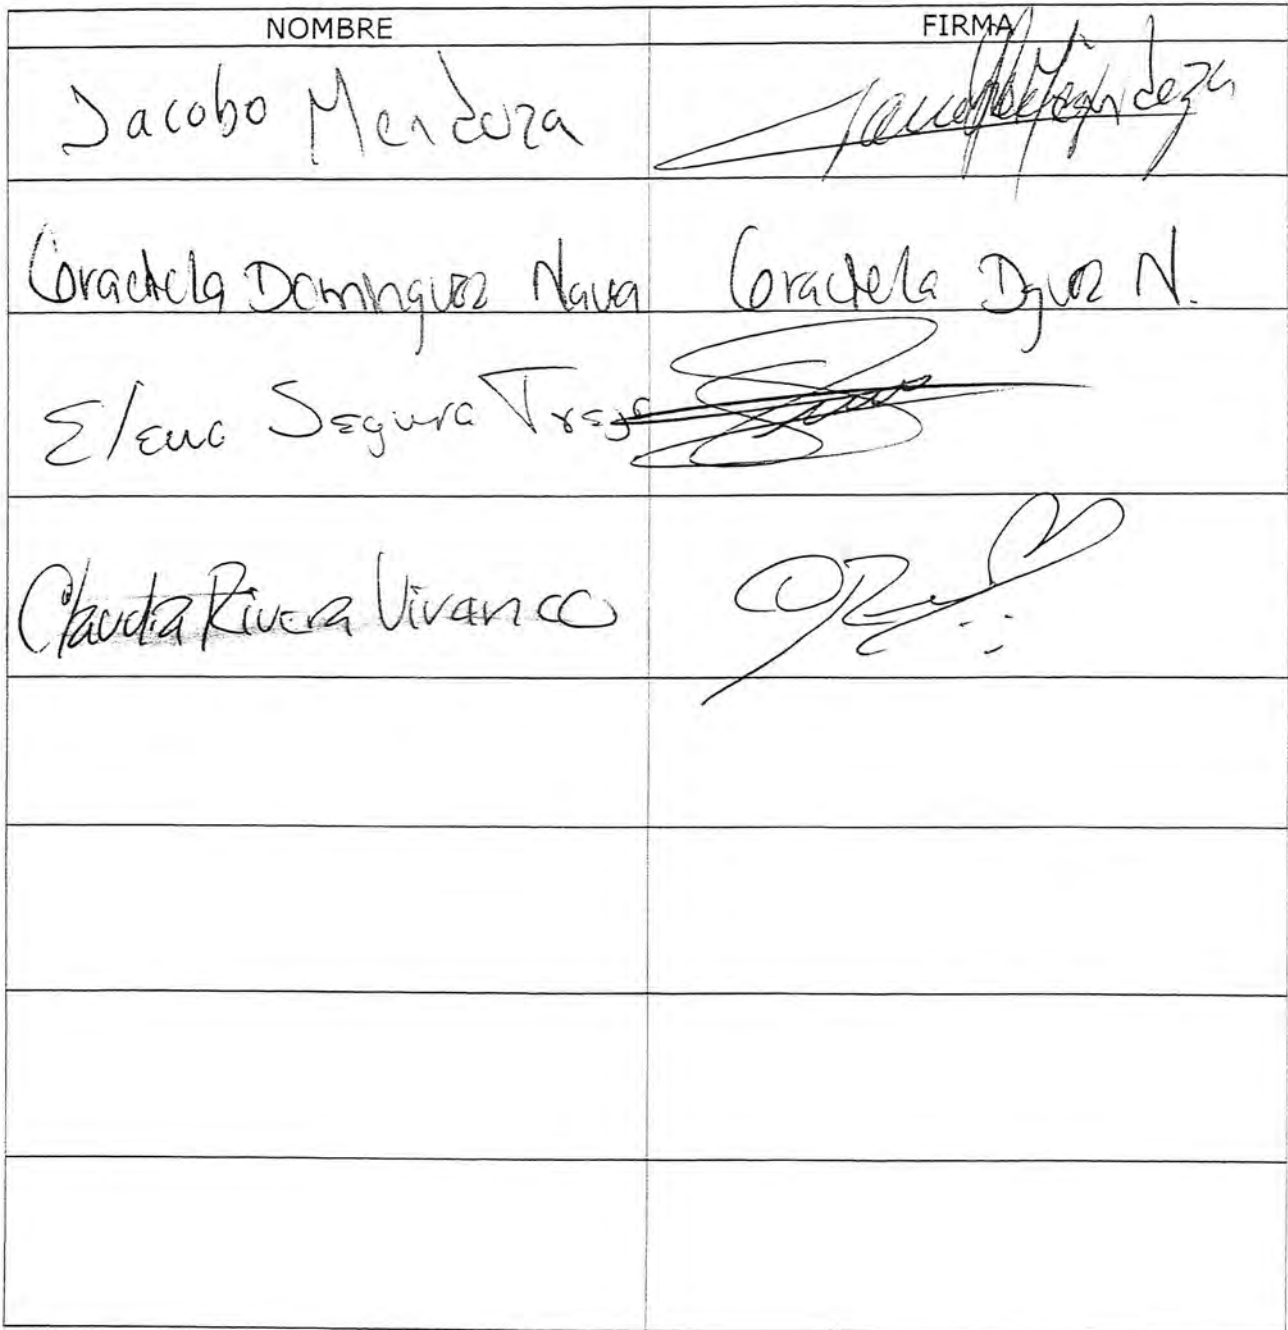 NOMBRE FIRMA
Jacobo Mendoza
Graciela Dominguez Nava Graciela Dguez N.
Elena Segura Trejo
Claudia Rivera Vivanco